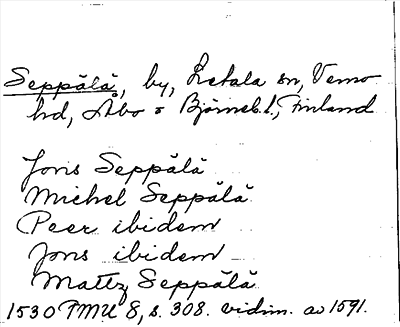 Seppälä, by, Letala sn, Vemo
hd, Åbo o Björneb. l., Finland
Jons Seppälä
Michel Seppälä
Peer ibidem
Jons ibidem
Mattz Seppälä
1530 FMU 8, s. 308. vidim. av 1591.